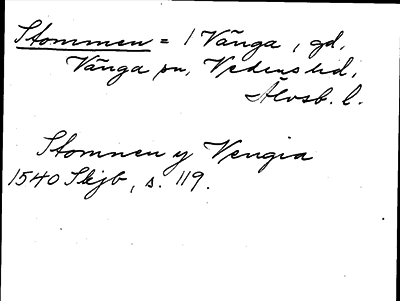 Stommen = 1 Vånga, gd,
Vånga sn, Vedens hd,
Älvsb. l.
Stomnen y Vengia
1540 Skjb, s. 119.